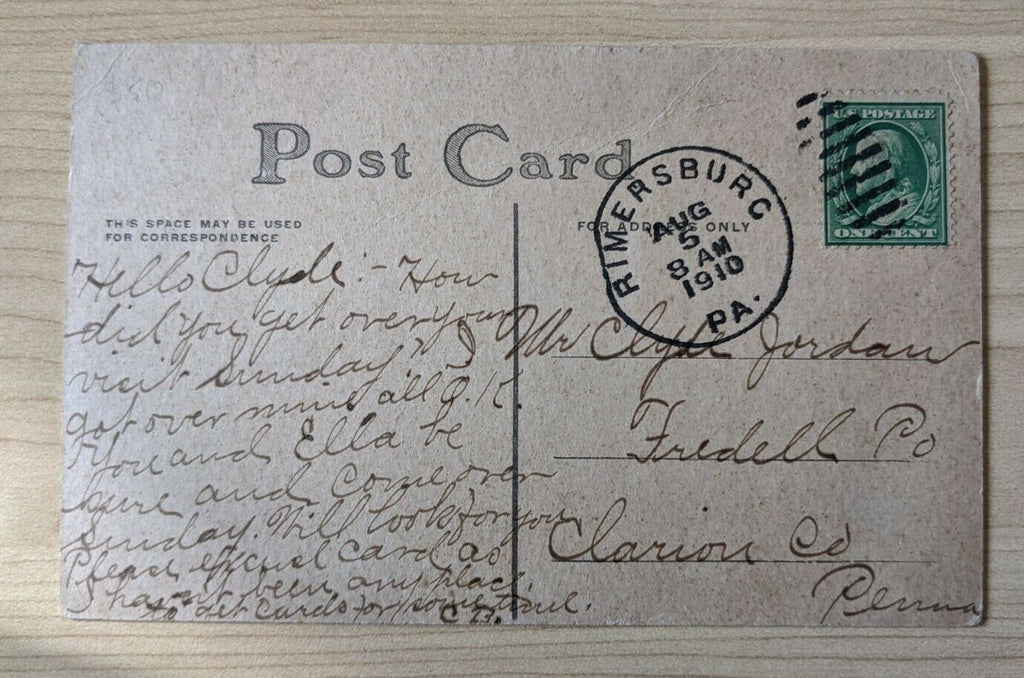 Post Card
THIS SPACE MAY BE USED
FOR CORRESPONDENCE
Hello Clyde:- How
did you get over your
visit Sunday? I
got over mine all O.K.
You and Ella be
sure and come over
Sunday. Will look for you
Please excuse card as
I have not been any place
to get cards for some time.
FOR ADDRESS ONLY
Mr Clyde Jordan
Fredell Po
Clarion Co
Penna
RIMERSBURG
AUG
5
8 AM
1910
PA.
U.S. POSTAGE
ONE CENT